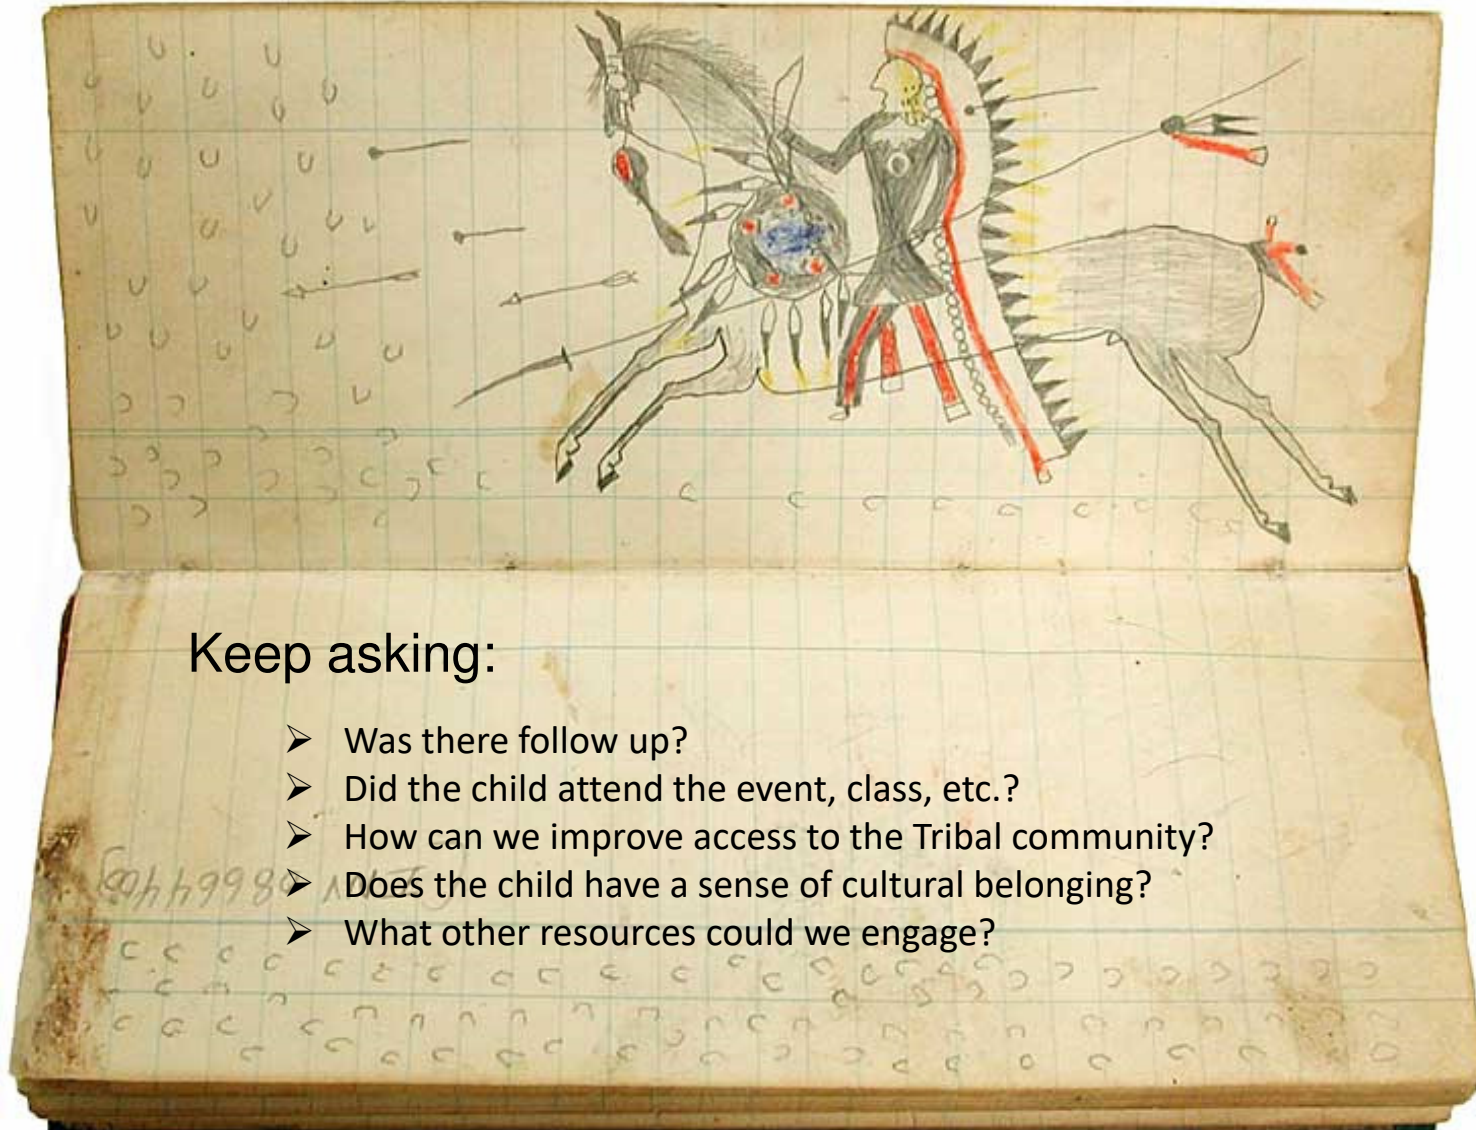 Keep asking:
➢ Was there follow up?
➢ Did the child attend the event, class, etc.?
➢ How can we improve access to the Tribal community?
➢ Does the child have a sense of cultural belonging?
➢ What other resources could we engage?